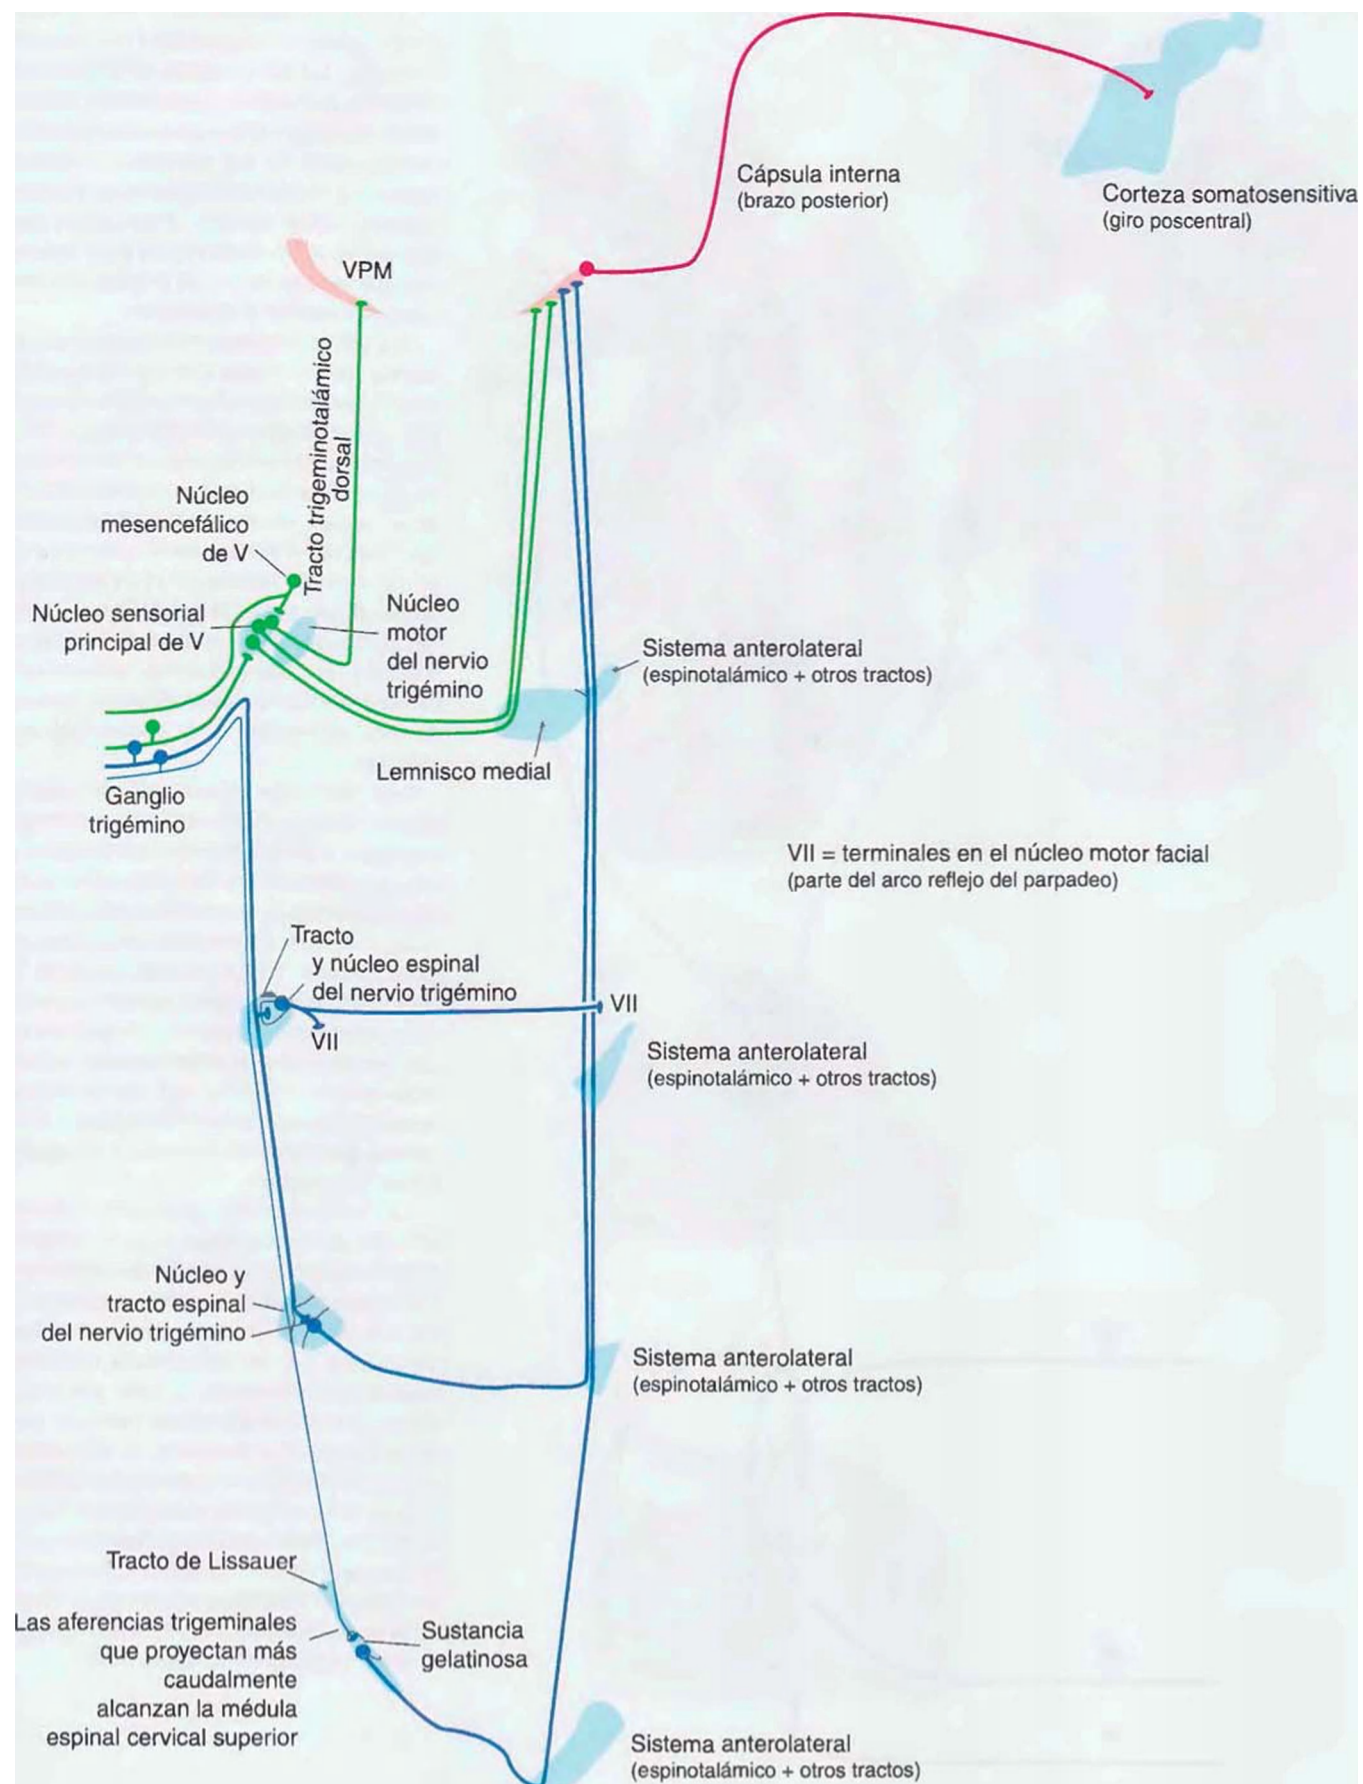 Cápsula interna
(brazo posterior)
Corteza somatosensitiva
(giro poscentral)
VPM
Tracto trigeminotalámico
dorsal
Núcleo
mesencefálico
de V
Núcleo sensorial
principal de V
Núcleo
motor
del nervio
trigémino
Sistema anterolateral
(espinotalámico + otros tractos)
Lemnisco medial
Ganglio
trigémino
VII = terminales en el núcleo motor facial
(parte del arco reflejo del parpadeo)
Tracto
y núcleo espinal
del nervio trigémino
VII
VII
Sistema anterolateral
(espinotalámico + otros tractos)
Núcleo y
tracto espinal
del nervio trigémino
Sistema anterolateral
(espinotalámico + otros tractos)
Tracto de Lissauer
Las aferencias trigeminales
que proyectan más
caudalmente
alcanzan la médula
espinal cervical superior
Sustancia
gelatinosa
Sistema anterolateral
(espinotalámico + otros tractos)